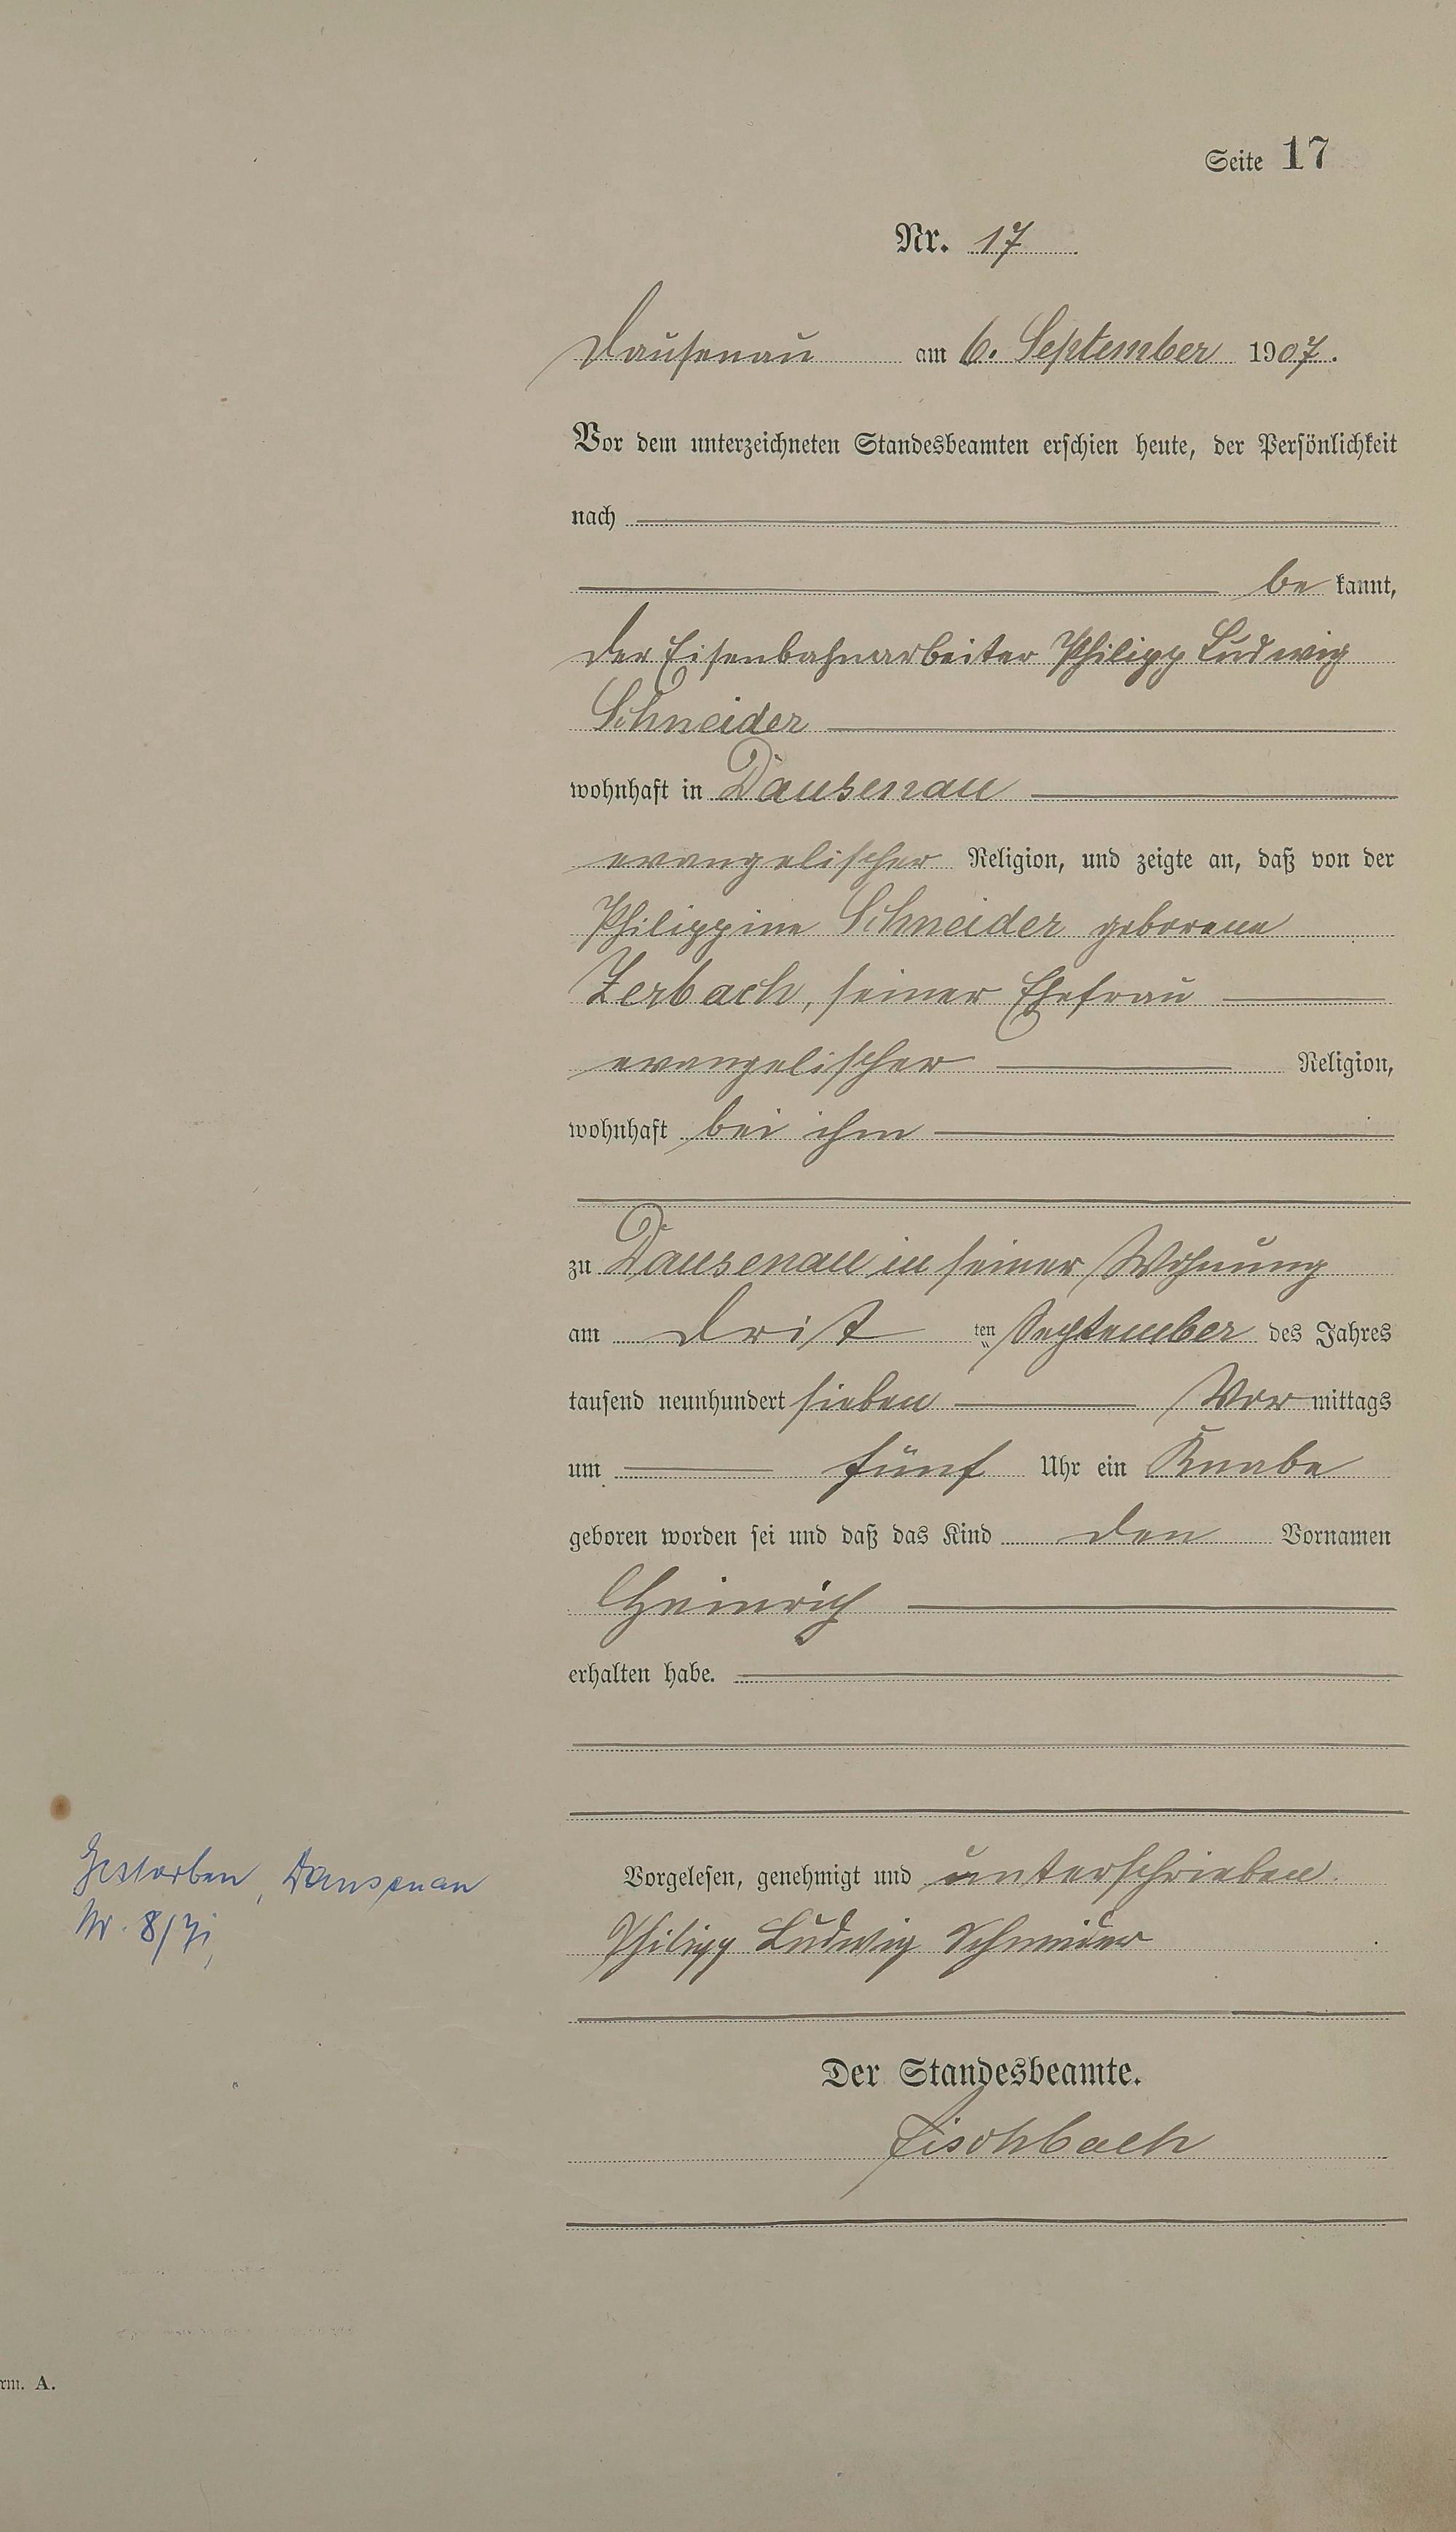 Seite 17
Nr. 17
Dausenau am 6. September 1907.
Vor dem unterzeichneten Standesbeamten erschien heute, der Persönlichkeit
nach
be kannt,
der Eisenbahnarbeiter Philipp Ludwig
Schneider
wohnhaft in Dausenau
evangelischer Religion, und zeigte an, daß von der
Philippine Schneider geborene
Zerbach, seiner Ehefrau
evangelischer Religion,
wohnhaft bei ihm
zu Dausenau in seiner Wohnung
am drit ten September des Jahres
tausend neunhundert sieben Vor mittags
um fünf Uhr ein Knabe
geboren worden sei und daß das Kind den Vornamen
Heinrich
erhalten habe.
Gestorben, Dausenau
Nr. 8/71
Vorgelesen, genehmigt und unterschrieben.
Philipp Ludwig Schneider
Der Standesbeamte.
Fischbach
rm. A.